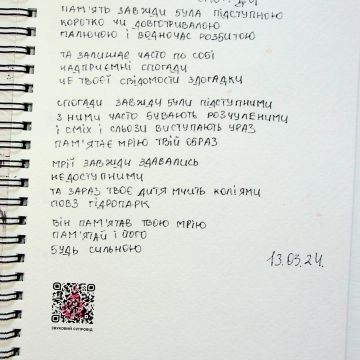 ПАМ'ЯТЬ ЗАВЖДИ БУЛА ПІДСТУПНОЮ
КОРОТКО ЧИ ДОВГОТРИВАЛОЮ
ПАЛЮЧОЮ І ВОДНОЧАС РОЗБИТОЮ
ТА ЗАЛИШАЄ ЧАСТО ПО СОБІ
НАДПРИЄМНІ СПОГАДИ
ЧЕ ТВОЄЇ СВІДОМОСТИ ЗДОГАДКИ
СПОГАДИ ЗАВЖДИ БУЛИ ПІДСТУПНИМИ
З НИМИ ЧАСТО БУВАЮТЬ РОЗЧУЛЕНИМИ
І СМІХ І СЛЬОЗИ ВИСТУПАЮТЬ УРАЗ
ПАМ'ЯТАЄ МРІЮ ТВІЙ ОБРАЗ
МРІЇ ЗАВЖДИ ЗДАВАЛИСЬ
НЕДОСТУПНИМИ
ТА ЗАРАЗ ТВОЄ ДИТЯ МЧИТЬ КОЛІЯМИ
ПОВЗ ГІДРОПАРК
ВІН ПАМ'ЯТАВ ТВОЮ МРІЮ
ПАМ'ЯТАЙ І ЙОГО
БУДЬ СИЛЬНОЮ
13.03.24.
ЗВУКОВИЙ СУПРОВІД